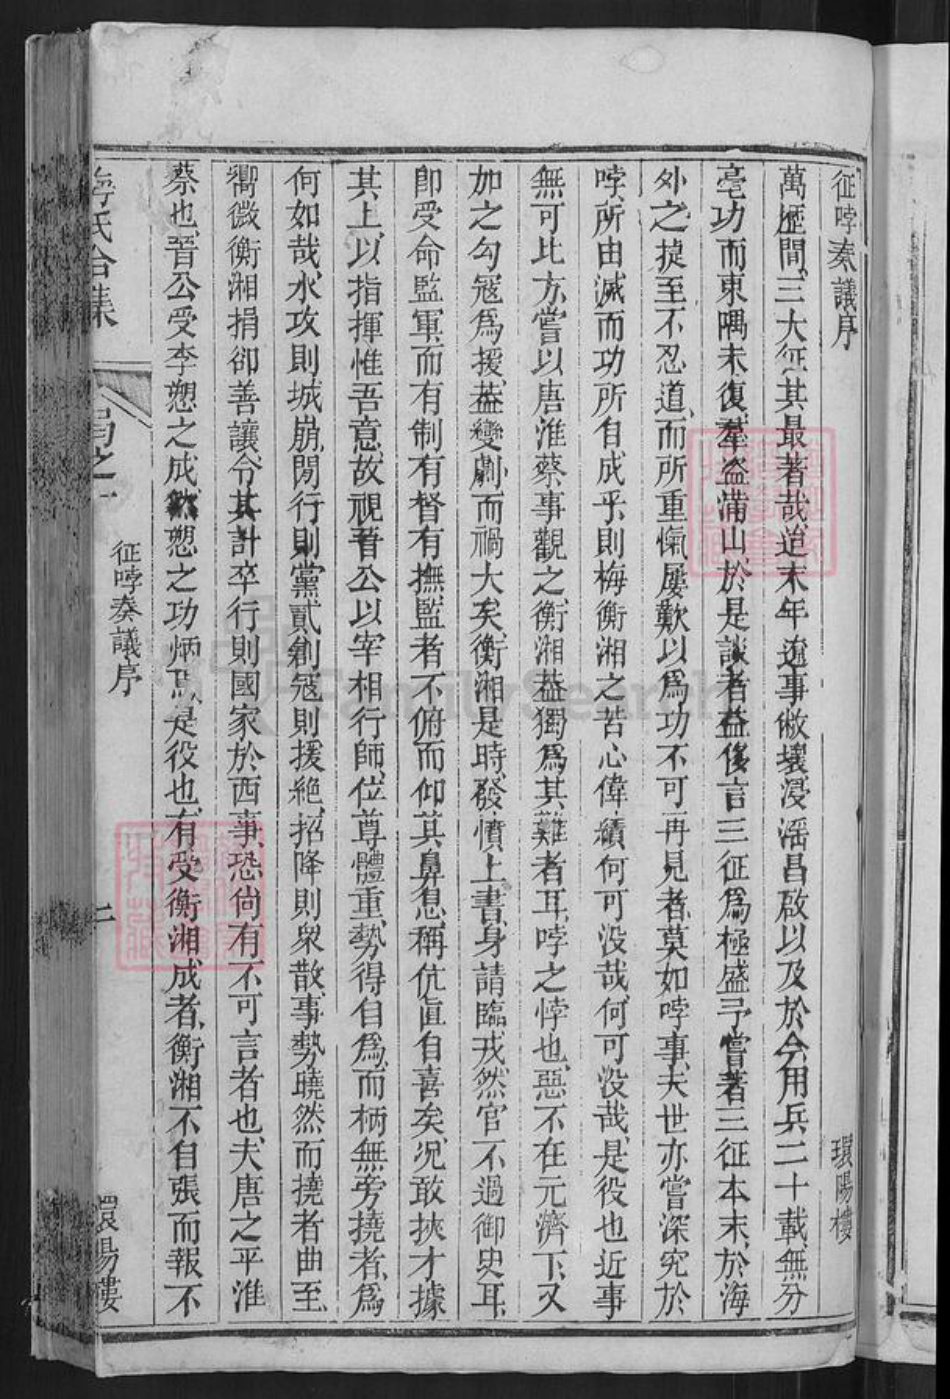 征哱奏議序 環陽樓
萬曆間、三大征、其最著哉、迨末年遼事敝壞、浸淫昌啟以及於今、用兵二十載、無分
毫功、而東隅未復、羣盜滿山、於是談者益侈言三征爲極盛、予嘗著三征本末、於海
外之捷、至不忍道、而所重愾屢歎以爲功不可再見者、莫如哱事、夫世亦嘗深究於
哱所由滅而功所自成乎、則梅衡湘之苦心偉績、何可没哉、何可没哉、是役也、近事
無可比方、嘗以唐淮蔡事觀之、衡湘葢獨爲其難者耳、哱之悖也、惡不在元濟下、又
加之勾寇爲援、葢變劇而禍大矣、衡湘是時、發憤上書、身請臨戎、然官不過御史耳、
卽受命監軍、而有制有督有撫、監者不俯而仰其鼻息、稱伉直自喜矣、况敢挾才據
其上、以指揮惟吾意、故視晉公以宰相行師、位尊體重、勢得自爲、而柄無旁撓者、爲
何如哉、水攻則城崩、閒行則黨貳、創寇則援絶、招降則衆散、事勢曉然、而撓者曲至、
嚮微衡湘捐卻善讓、令其計卒行、則國家於西事、恐尙有不可言者也、夫唐之平淮
蔡也、晉公受李愬之成、然愬之功炳焉、是役也、有受衡湘成者、衡湘不自張而報不
梅氏合集
征哱奏議序
二
環陽樓